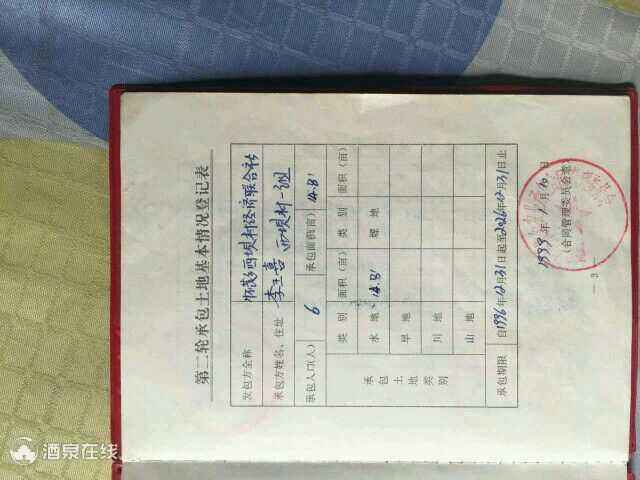 第二轮承包土地基本情况登记表
发包方全称 西坝村经济联合社
承包方姓名、住址 李玉喜 西坝村一组
承包人口(人) 6 承包面积(亩) 14.8
承包土地类别
类别 面积(亩) 类别 面积(亩)
水地 14.8 地
旱地
川地
山地
承包期限 自1996年12月31日起至2026年12月31日止
1999年1月10日
(合同管理委员会章)
— 3 —
酒泉在线